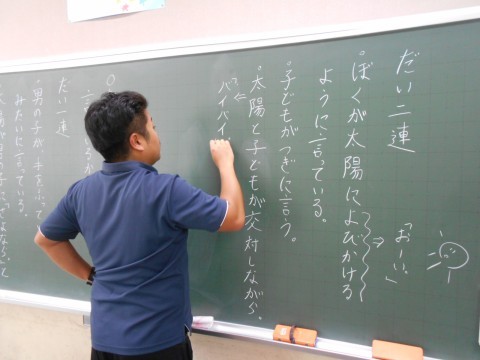 だい二連
。ぼくが太陽によびかける
ように言っている。
⇒「おーい。」
。子どもがつぎに言う。
。太陽と子どもが交対しながら。
⇐「バイバイ
だい二連
。男の子が手をふって
みたいに言っている。